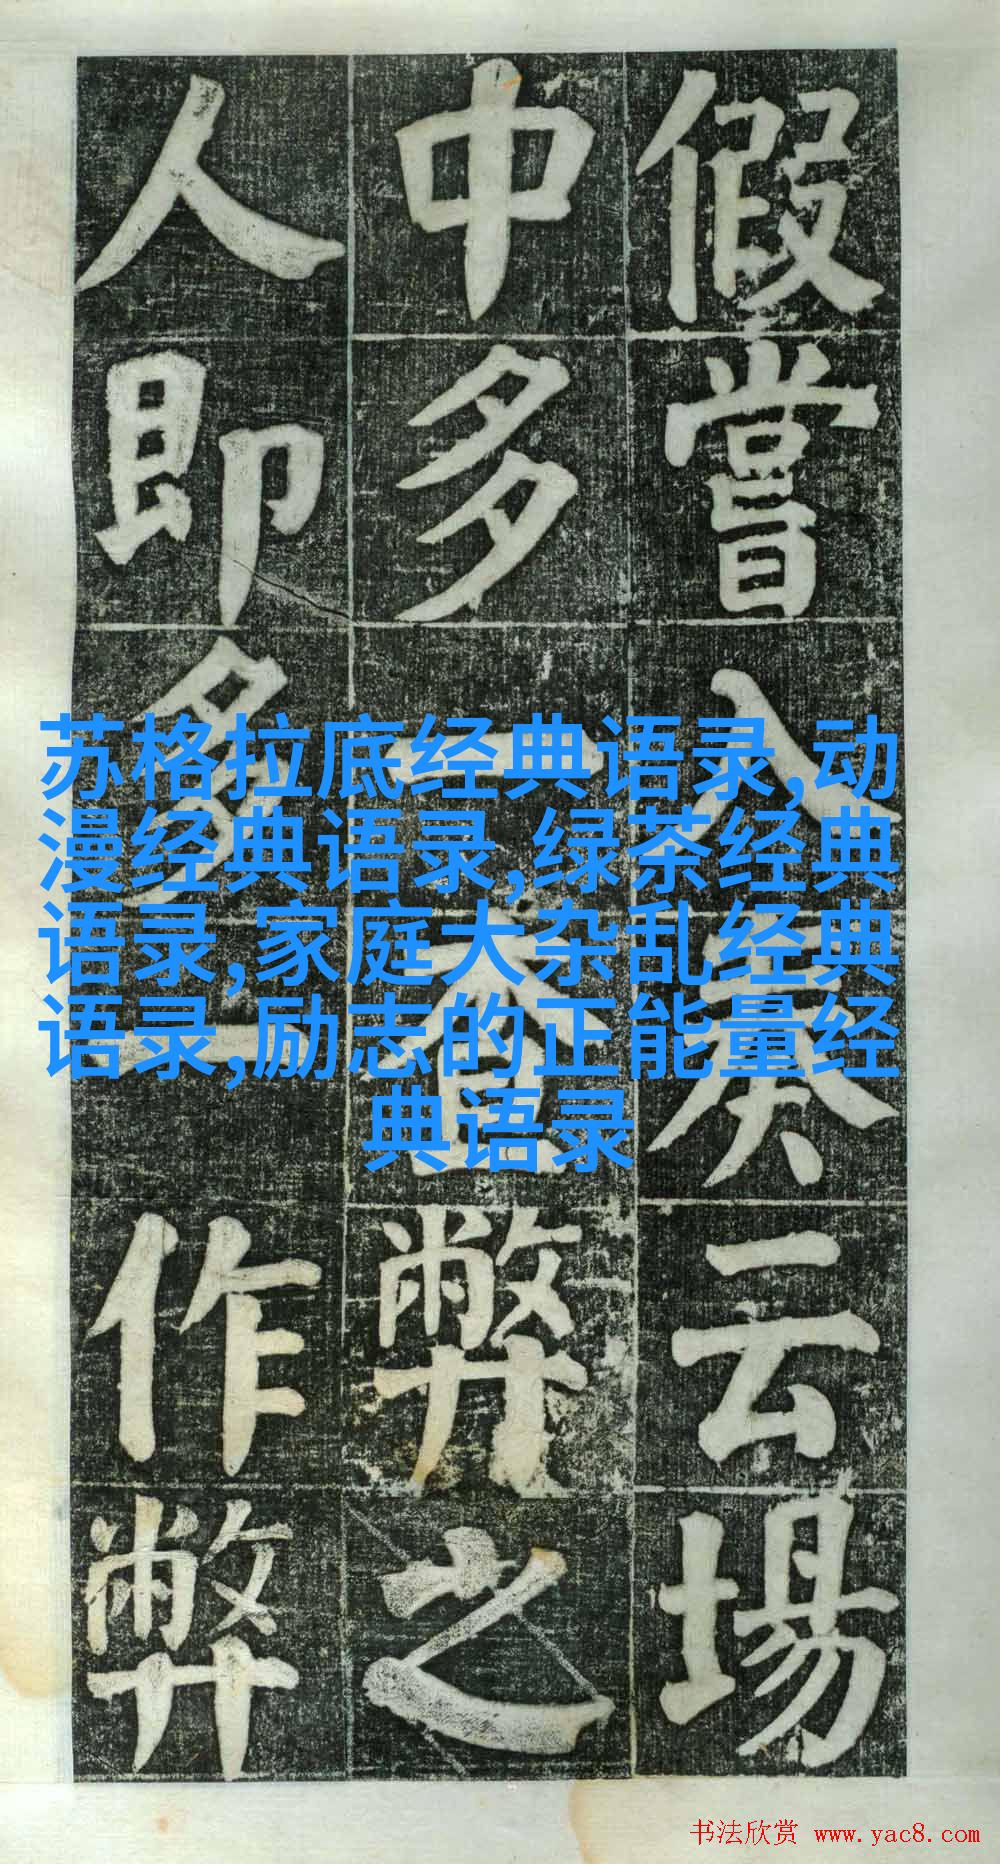 假嘗入奏云場
中多一查弊之
人即多一作弊
苏格拉底经典语录,动
漫经典语录,绿茶经典
语录,家庭大杂乱经典
语录,励志的正能量经
典语录
书法欣赏 www.yac8.com